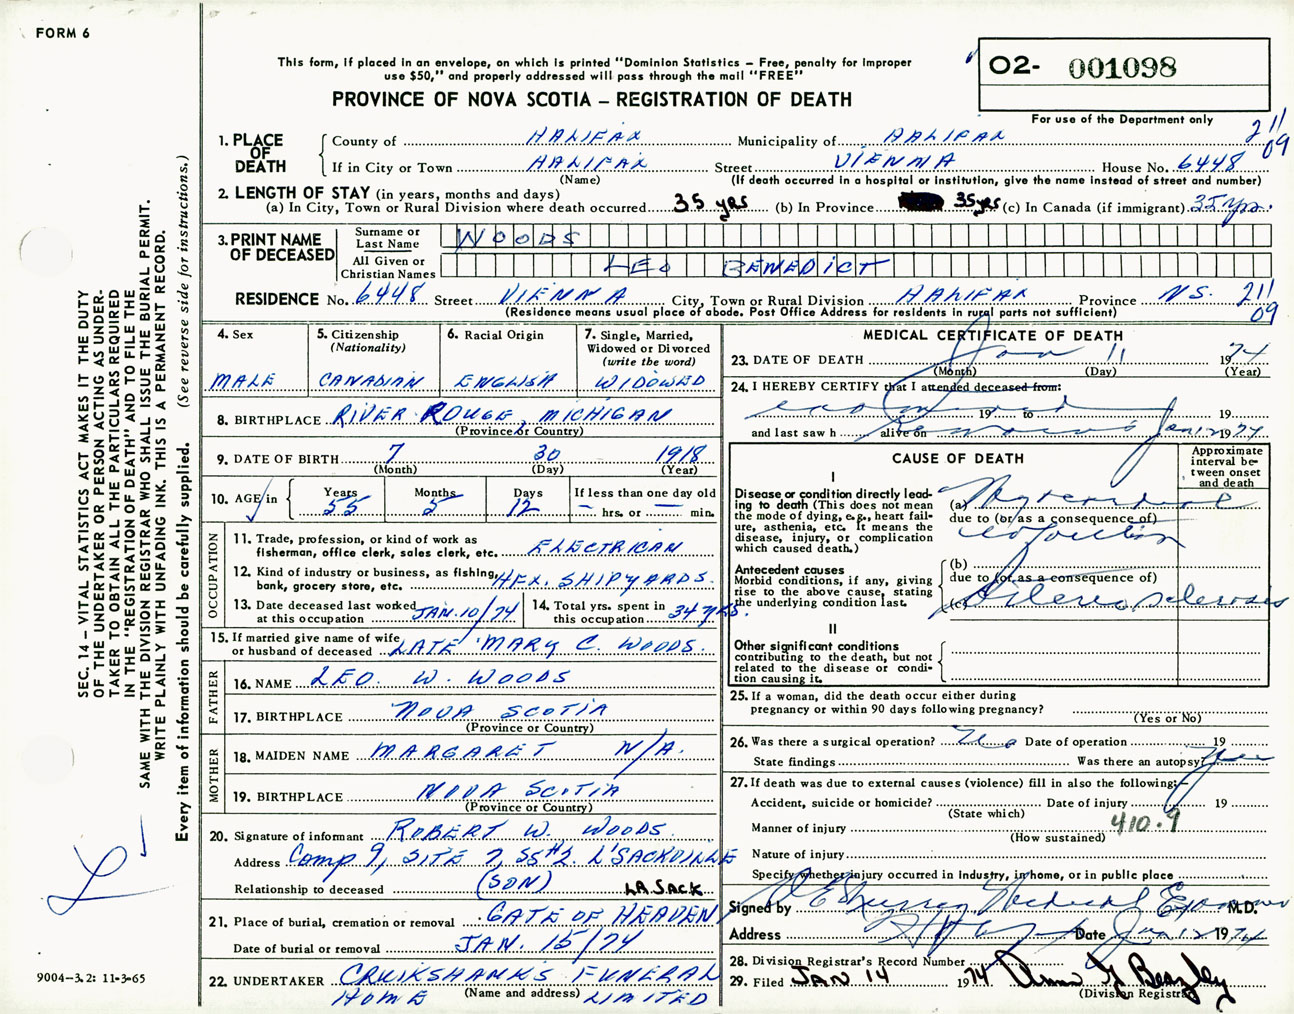 FORM 6
This form, if placed in an envelope, on which is printed "Dominion Statistics – Free, penalty for improper
use $50," and properly addressed will pass through the mail "FREE"
PROVINCE OF NOVA SCOTIA – REGISTRATION OF DEATH
02- 001098
For use of the Department only
211
09
1. PLACE OF DEATH
County of HALIFAX Municipality of HALIFAX
If in City or Town HALIFAX Street VIENNA House No. 6448
(Name) (If death occurred in a hospital or institution, give the name instead of street and number)
2. LENGTH OF STAY (in years, months and days)
(a) In City, Town or Rural Division where death occurred 35 yrs (b) In Province 35yrs (c) In Canada (if immigrant) 35 yrs.
3. PRINT NAME OF DECEASED
Surname or Last Name WOODS
All Given or Christian Names LEO BENEDICT
RESIDENCE No. 6448 Street VIENNA City, Town or Rural Division HALIFAX Province N.S. 211
09
(Residence means usual place of abode. Post Office Address for residents in rural parts not sufficient)
4. Sex
MALE
5. Citizenship
(Nationality)
CANADIAN
6. Racial Origin
ENGLISH
7. Single, Married,
Widowed or Divorced
(write the word)
WIDOWED
8. BIRTHPLACE RIVER ROUGE, MICHIGAN
(Province or Country)
9. DATE OF BIRTH 7 30 1918
(Month) (Day) (Year)
10. AGE in
Years Months Days If less than one day old
55 5 12 – hrs. or – min.
OCCUPATION
11. Trade, profession, or kind of work as
fisherman, office clerk, sales clerk, etc. ELECTRICAN
12. Kind of industry or business, as fishing,
bank, grocery store, etc. HFX. SHIPYARDS.
13. Date deceased last worked
at this occupation JAN. 10/74
14. Total yrs. spent in
this occupation 34 yrs.
15. If married give name of wife
or husband of deceased LATE MARY C. WOODS.
FATHER
16. NAME LEO. W. WOODS
17. BIRTHPLACE NOVA SCOTIA
(Province or Country)
MOTHER
18. MAIDEN NAME MARGARET N/A.
19. BIRTHPLACE NOVA SCOTIA
(Province or Country)
20. Signature of informant ROBERT W. WOODS.
Address Comp 9, SITE 7, SS#2. L'SACKVILLE
Relationship to deceased (SON) LR. SACK
21. Place of burial, cremation or removal GATE OF HEAVEN
Date of burial or removal JAN. 15/74
22. UNDERTAKER CRUIKSHANKS FUNERAL
HOME (Name and address) LIMITED
MEDICAL CERTIFICATE OF DEATH
23. DATE OF DEATH Jan 11 1974
(Month) (Day) (Year)
24. I HEREBY CERTIFY that I attended deceased from:
examined 19 to 19
and last saw h alive on remains Jan 12 1974
CAUSE OF DEATH
Approximate
interval be-
tween onset
and death
I
Disease or condition directly lead-
ing to death (This does not mean
the mode of dying, e.g., heart fail-
ure, asthenia, etc. It means the
disease, injury, or complication
which caused death.)
(a) Myocardial
due to (or as a consequence of)
infarction
Antecedent causes
Morbid conditions, if any, giving
rise to the above cause, stating
the underlying condition last.
(b)
due to (or as a consequence of)
(c) Arteriosclerosis
II
Other significant conditions
contributing to the death, but not
related to the disease or condi-
tion causing it.
25. If a woman, did the death occur either during
pregnancy or within 90 days following pregnancy?
(Yes or No)
26. Was there a surgical operation? No Date of operation 19
State findings Was there an autopsy?
27. If death was due to external causes (violence) fill in also the following:
Accident, suicide or homicide? Date of injury 19
(State which)
Manner of injury 410.9
(How sustained)
Nature of injury
Specify whether injury occurred in industry, in home, or in public place
Signed by Murray Medical Examiner M.D.
Address Hfx Date Jan 12 1974
28. Division Registrar's Record Number
29. Filed JAN 14 1974
(Division Registrar)
SEC. 14 – VITAL STATISTICS ACT MAKES IT THE DUTY
OF THE UNDERTAKER OR PERSON ACTING AS UNDER-
TAKER TO OBTAIN ALL THE PARTICULARS REQUIRED
IN THE "REGISTRATION OF DEATH" AND TO FILE THE
SAME WITH THE DIVISION REGISTRAR WHO SHALL ISSUE THE BURIAL PERMIT.
WRITE PLAINLY WITH UNFADING INK. THIS IS A PERMANENT RECORD.
Every item of information should be carefully supplied. (See reverse side for instructions.)
9004-3.2: 11-3-65